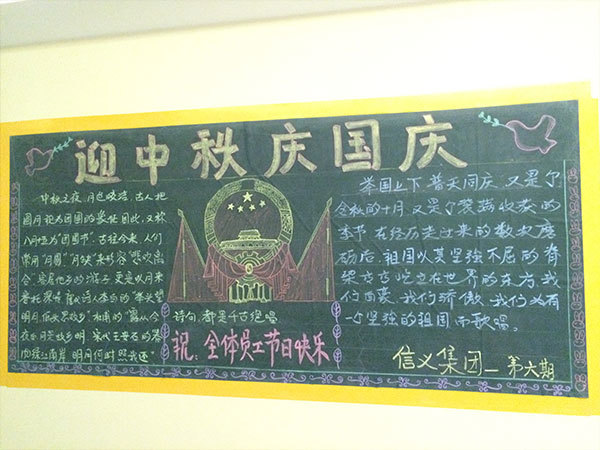 迎中秋庆国庆
中秋之夜,月色皎洁,古人把
圆月视为团圆的象征,因此,又称
八月十五为"团圆节"。古往今来,人们
常用"月圆""月缺"来形容"悲欢离
合",客居他乡的游子,更是以月来
寄托深情。唐代诗人李白的"举头望
明月,低头思故乡",杜甫的"露从今
夜白,月是故乡明",宋代王安石的"春
风又绿江南岸,明月何时照我还"
诗句,都是千古绝唱。
祝:全体员工节日快乐
举国上下,普天同庆,又是个
金秋的十月,又是个硕果收获的
季节,在经历过过来的数次磨
砺后,祖国以其坚强不屈的脊
梁屹立在世界的东方,我
们自豪,我们骄傲,我们为有
一个坚强的祖国而歌唱。
信义集团—第六期